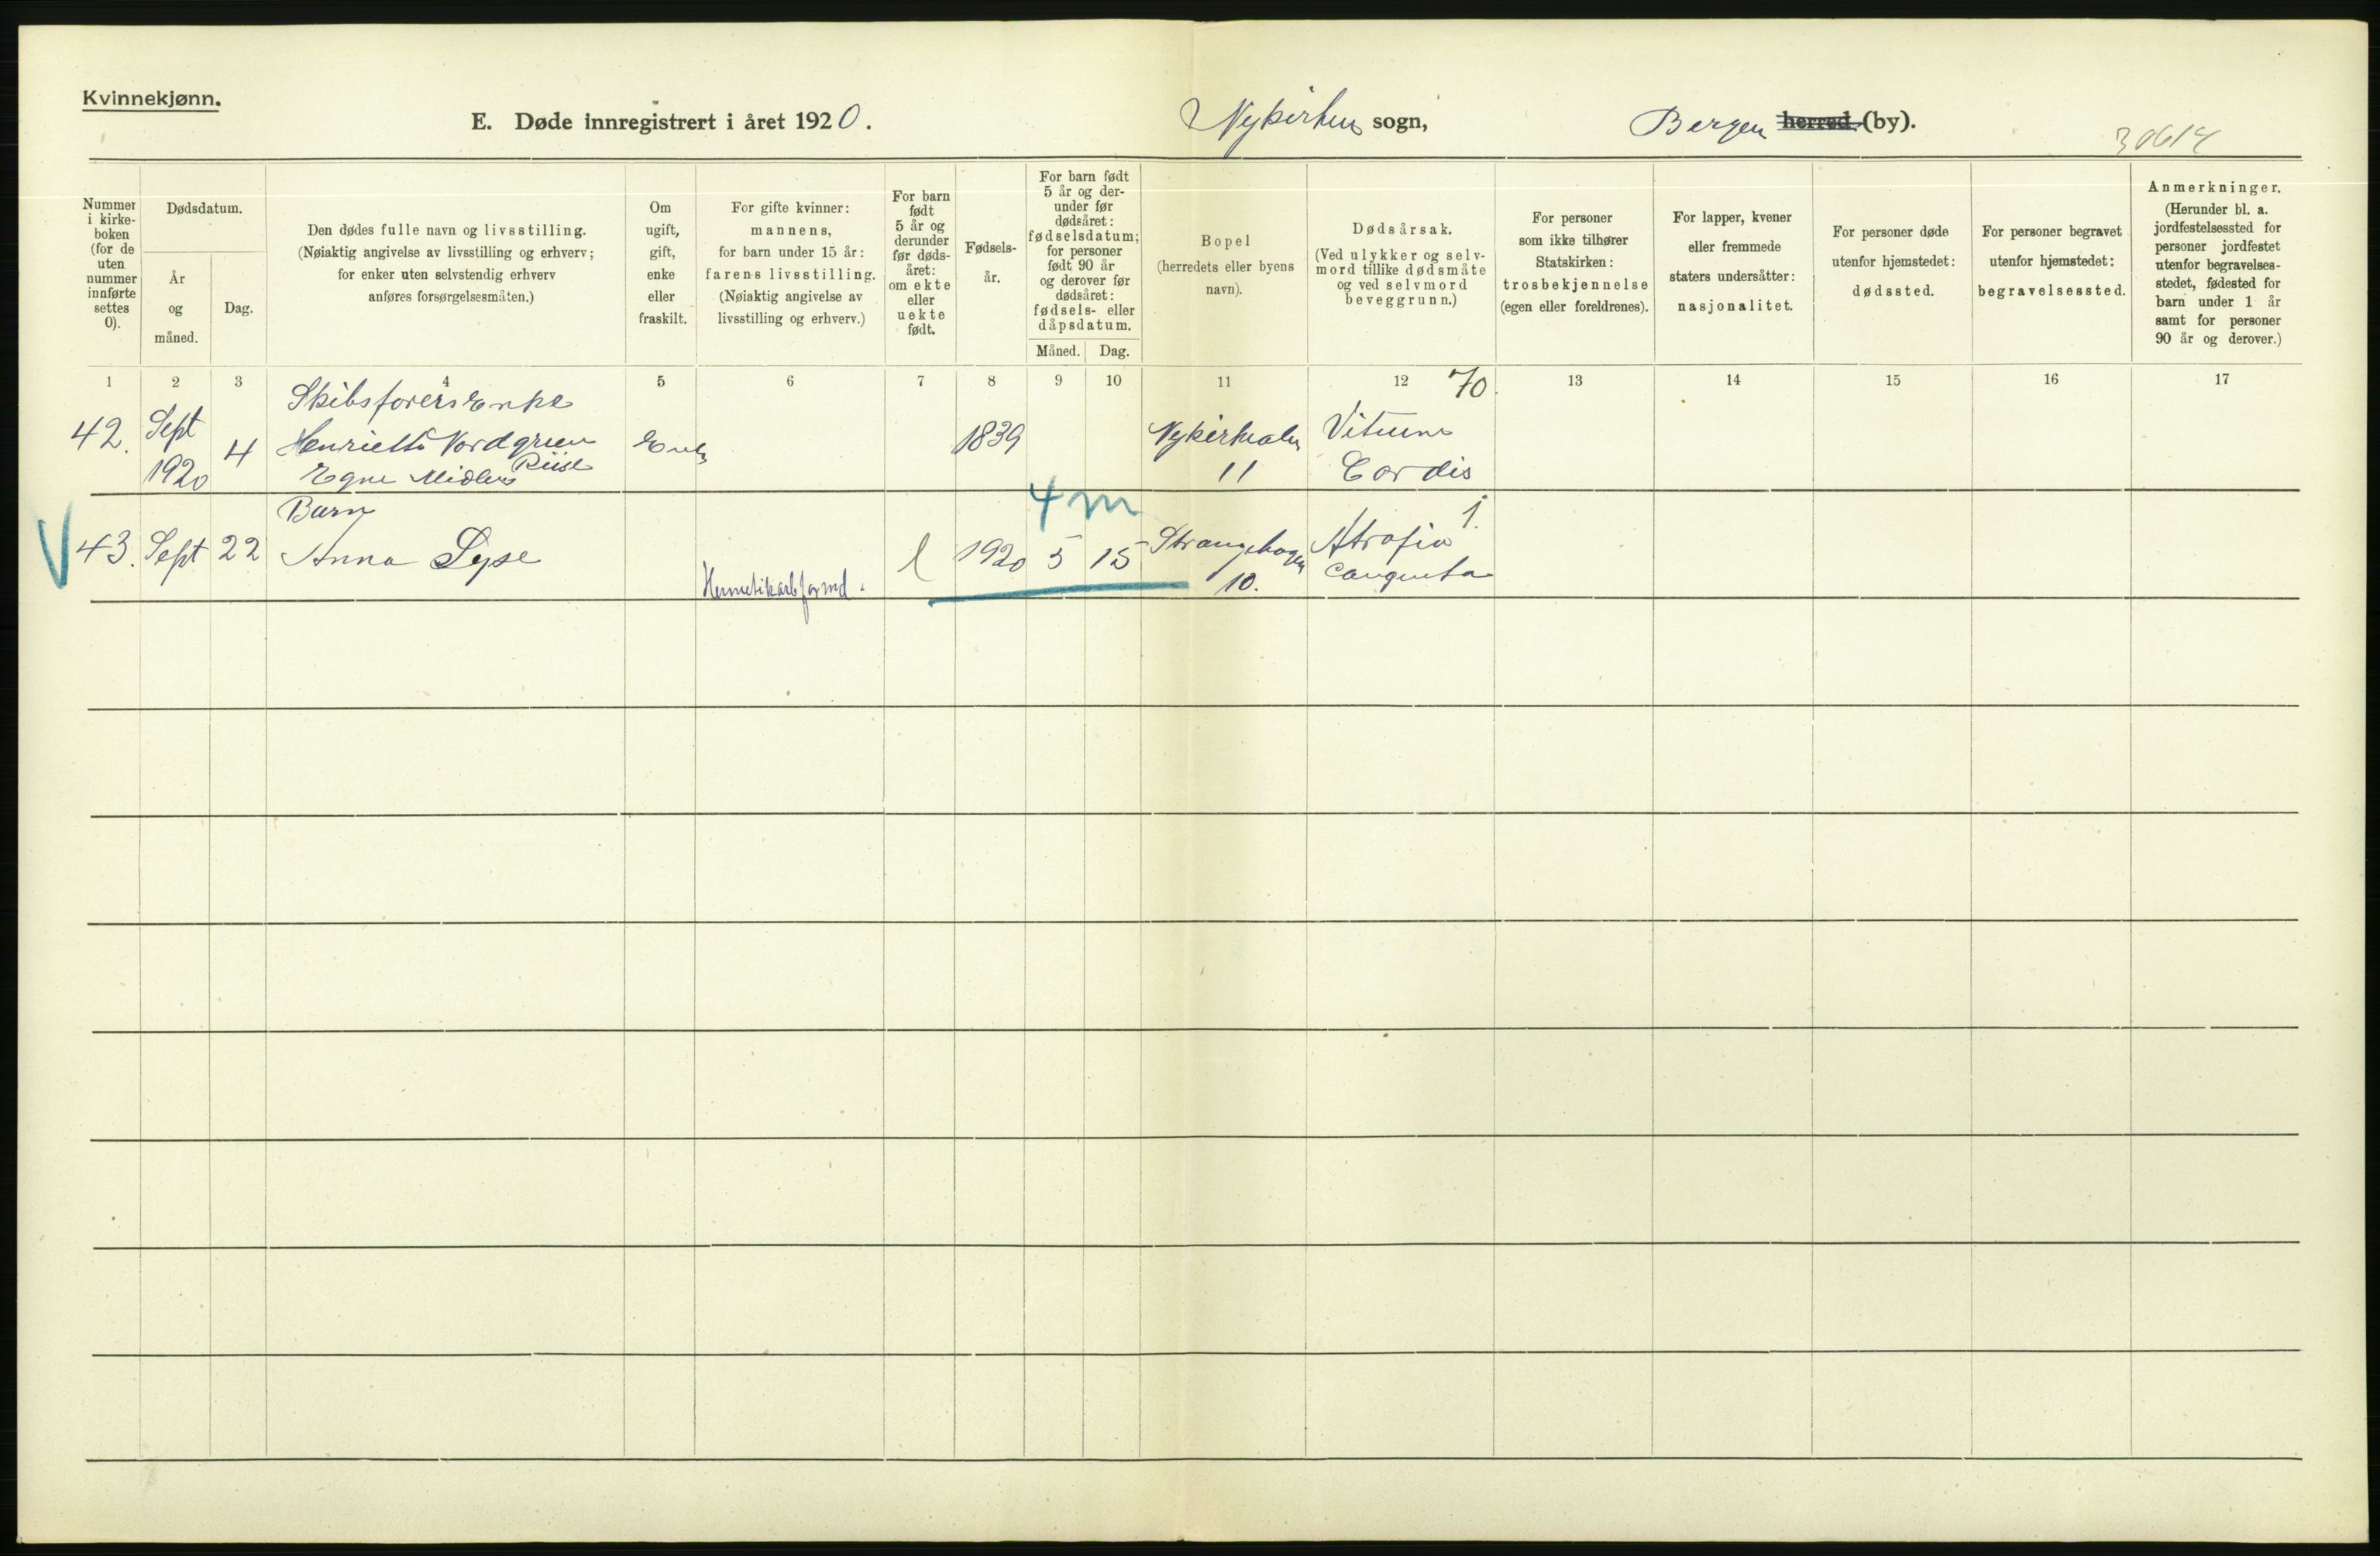 Kvinnekjønn.
E. Døde innregistrert i året 1920. Nykirkens sogn, Bergen herred (by).
30614
Nummer
i kirke-
boken
(for de
uten
nummer
innførte
settes
0).
Dødsdatum.
År
og
måned.
Dag.
Den dødes fulle navn og livsstilling.
(Nøiaktig angivelse av livsstilling og erhverv;
for enker uten selvstendig erhverv
anføres forsørgelsesmåten.)
Om
ugift,
gift,
enke
eller
fraskilt.
For gifte kvinner:
mannens,
for barn under 15 år:
farens livsstilling.
(Nøiaktig angivelse av
livsstilling og erhverv.)
For barn
født
5 år og
derunder
før døds-
året:
om ekte
eller
uekte
født.
Fødsels-
år.
For barn født
5 år og der-
under før
dødsåret:
fødselsdatum;
for personer
født 90 år
og derover før
dødsåret:
fødsels- eller
dåpsdatum.
Måned. Dag.
Bopel
(herredets eller byens
navn).
Dødsårsak.
(Ved ulykker og selv-
mord tillike dødsmåte
og ved selvmord
beveggrunn.)
For personer
som ikke tilhører
Statskirken:
trosbekjennelse
(egen eller foreldrenes).
For lapper, kvener
eller fremmede
staters undersåtter:
nasjonalitet.
For personer døde
utenfor hjemstedet:
dødssted.
For personer begravet
utenfor hjemstedet:
begravelsessted.
Anmerkninger.
(Herunder bl. a.
jordfestelsessted for
personer jordfestet
utenfor begravelses-
stedet, fødested for
barn under 1 år
samt for personer
90 år og derover.)
1 2 3 4 5 6 7 8 9 10 11 12 13 14 15 16 17
42.
Sept
1920
4
Skibsførers Enke
Henriette Nordgreen
Riise
Egne Midler
Enke
1839
Nykirkealm
11
70.
Vitium
Cordis
V 43.
Sept
22
Barn
Anna Lyse
Hermetikarbformd.
1920
4 m
5 15
Strangehagen
10.
1.
Atrofia